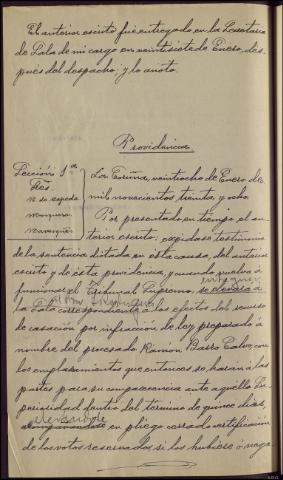 El anterior escrito fué entregado en la Secretaria
de Sala de mi cargo en veintisiete de Enero, des-
pues del despacho; y lo anoto.
Providencia
Sección 1ª
Sres.
La Coruña, veintiocho de Enero de
mil novecientos treinta y ocho
Por presentado en tiempo el an-
terior escrito; expidase testimonio
de la sentencia dictada en ésta causa, del anterior
escrito y de ésta providencia, y cuando vuelva á
funcionar el Tribunal Supremo, se elevará á
la Sala correspondiente á los efectos del recurso
de casación por infracción de ley preparado á
nombre del procesado Ramon Barro Calvo, con
los emplazamientos que entonces se harán á las
partes para su comparecencia ante aquella Su-
perioridad dentro del término de quince dias,
acompañandose en pliego cerrado certificación
de los votos reservados si los hubiese ó nega-